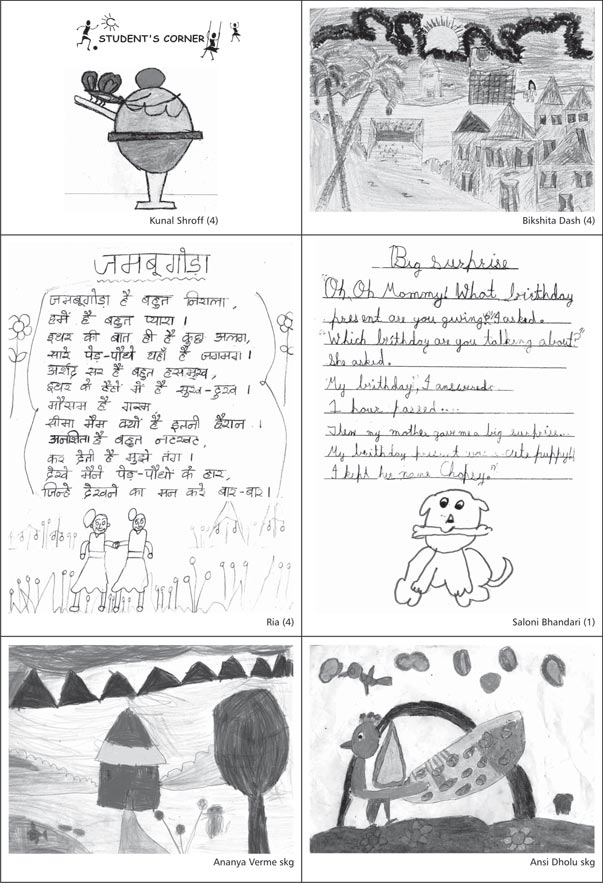 STUDENT'S CORNER
Kunal Shroff (4)
Bikshita Dash (4)
जमबूगोड़ा
जमबूगोड़ा है बहुत निराला,
हमें है बहुत प्यारा।
इधर की बात ही है कुछ अलग,
सारे पेड़-पौधे यहाँ है जगमग।
अर्शद सर है बहुत हसमुख,
इधर के है में है सुख-दुख।
मौसम है गरम
सीमा मैम क्यों है इतनी हैरान।
अनशिता है बहुत नटखट,
कर देती है मुझे तंग।
देखे मैने पेड़-पौधों के हार,
जिन्हे देखने का मन करे बार-बार।
Ria (4)
Big surprise
"Oh, Oh Mommy! What birthday
present are you giving?" I asked.
"Which birthday are you talking about?"
She asked.
My birthday", I answered.
1 hour passed....
Then my mother gave me a big surprise...
My birthday present was a cute puppy!
I kept his name Chopsy."
Saloni Bhandari (1)
Ananya Verme skg
Ansi Dholu skg